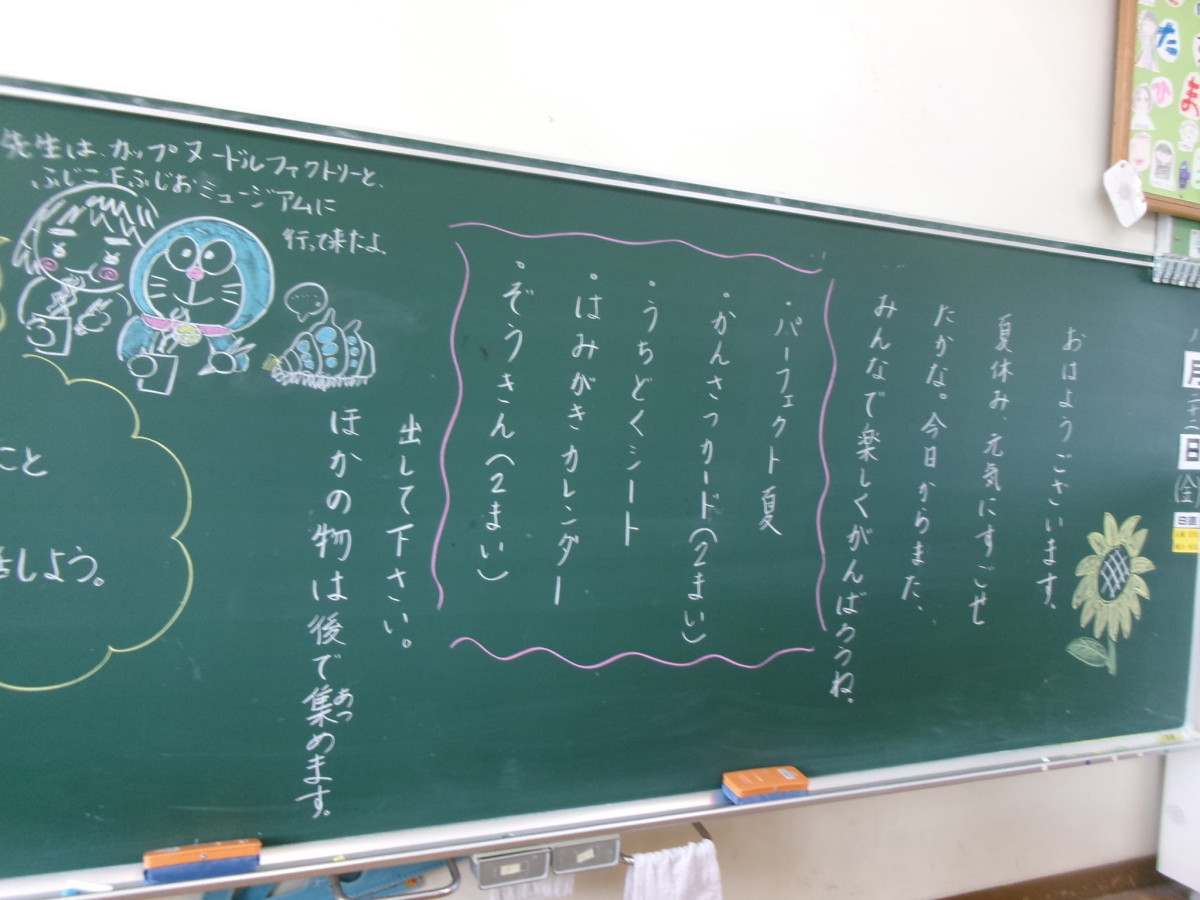 おはようございます。
夏休み、元気にすごせ
たかな。今日からまた、
みんなで楽しくがんばろうね。
・パーフェクト夏
・かんさつカード(2まい)
・うちどくシート
・はみがきカレンダー
・ぞうきん(2まい)
出して下さい。
ほかの物は後で集めます。
あつ
先生は、カップヌードルファクトリーと、
ふじこFふじおミュージアムに
行って来たよ。
こと
しよう。
月
日
(金)
日直
た
ひま